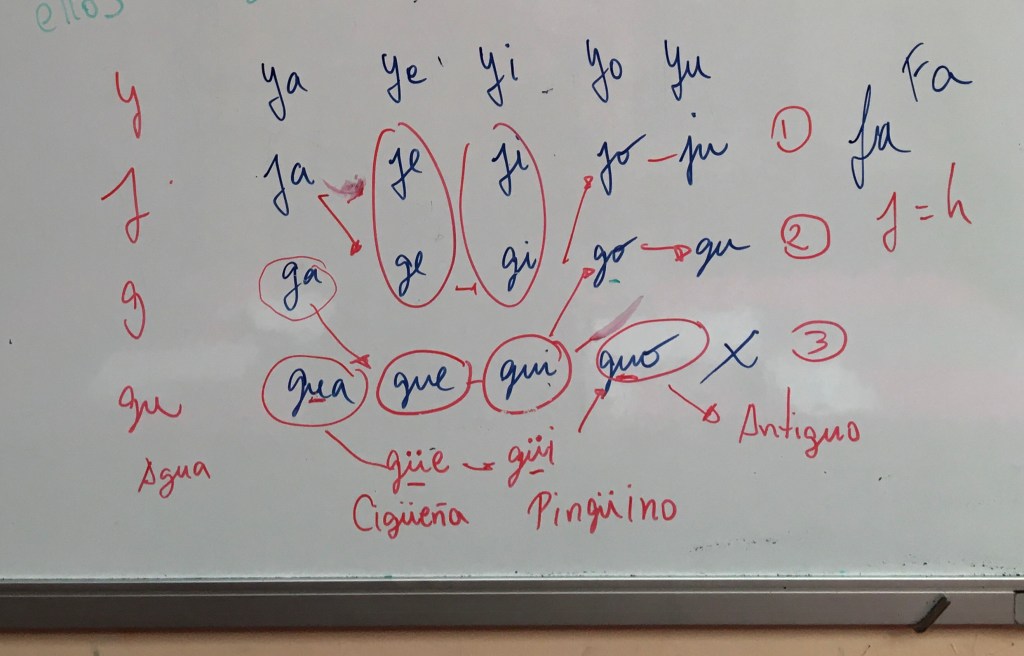 ellos
y ya ye yi yo yu Fa
j ja je ji jo - ju 1 fa
j = h
g ga ge gi go gu 2
gu gua gue gui guo X 3
Antiguo
Agua güe güi
Cigüeña Pingüino